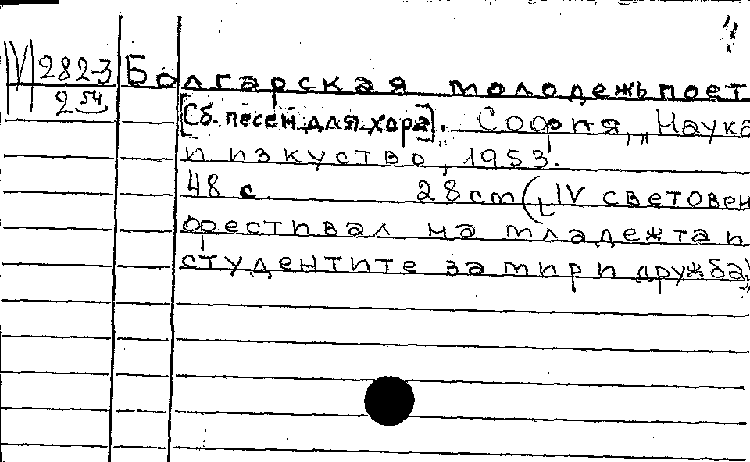 М 282-3
2 54
Болгарская молодежь поет
[Сб. песен для хора]. София, "Наука
и изкуство, 1953.
48 с 28 cm (IV световен
фестивал на младежта и
студентите за мир и дружба)